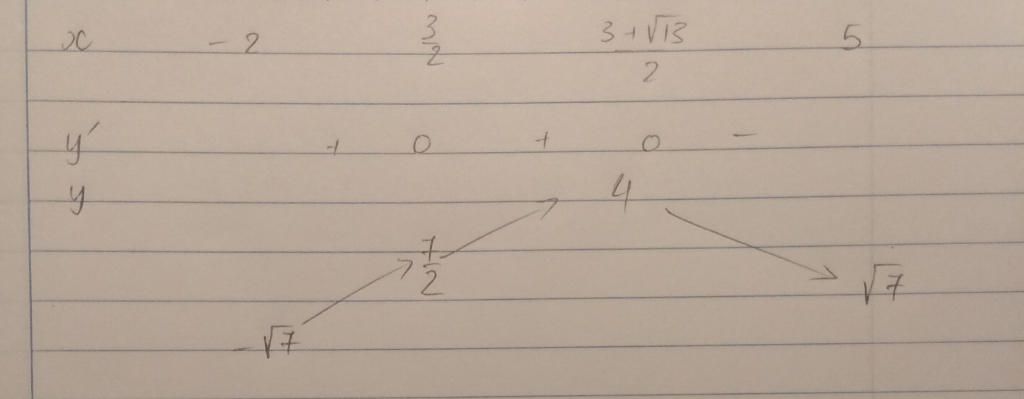 x -2 3/2 (3+√13)/2 5
y′ + 0 + 0 -
y 4
7/2
√7
-√7